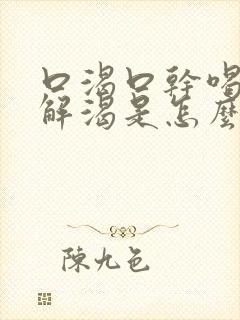 口渴口幹喝
解渴是怎麼
陳九色